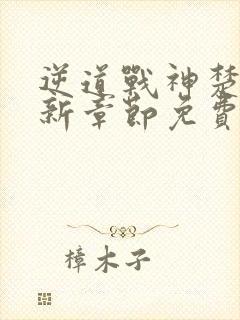 逆道戰神楚
新章節免費
樟木子